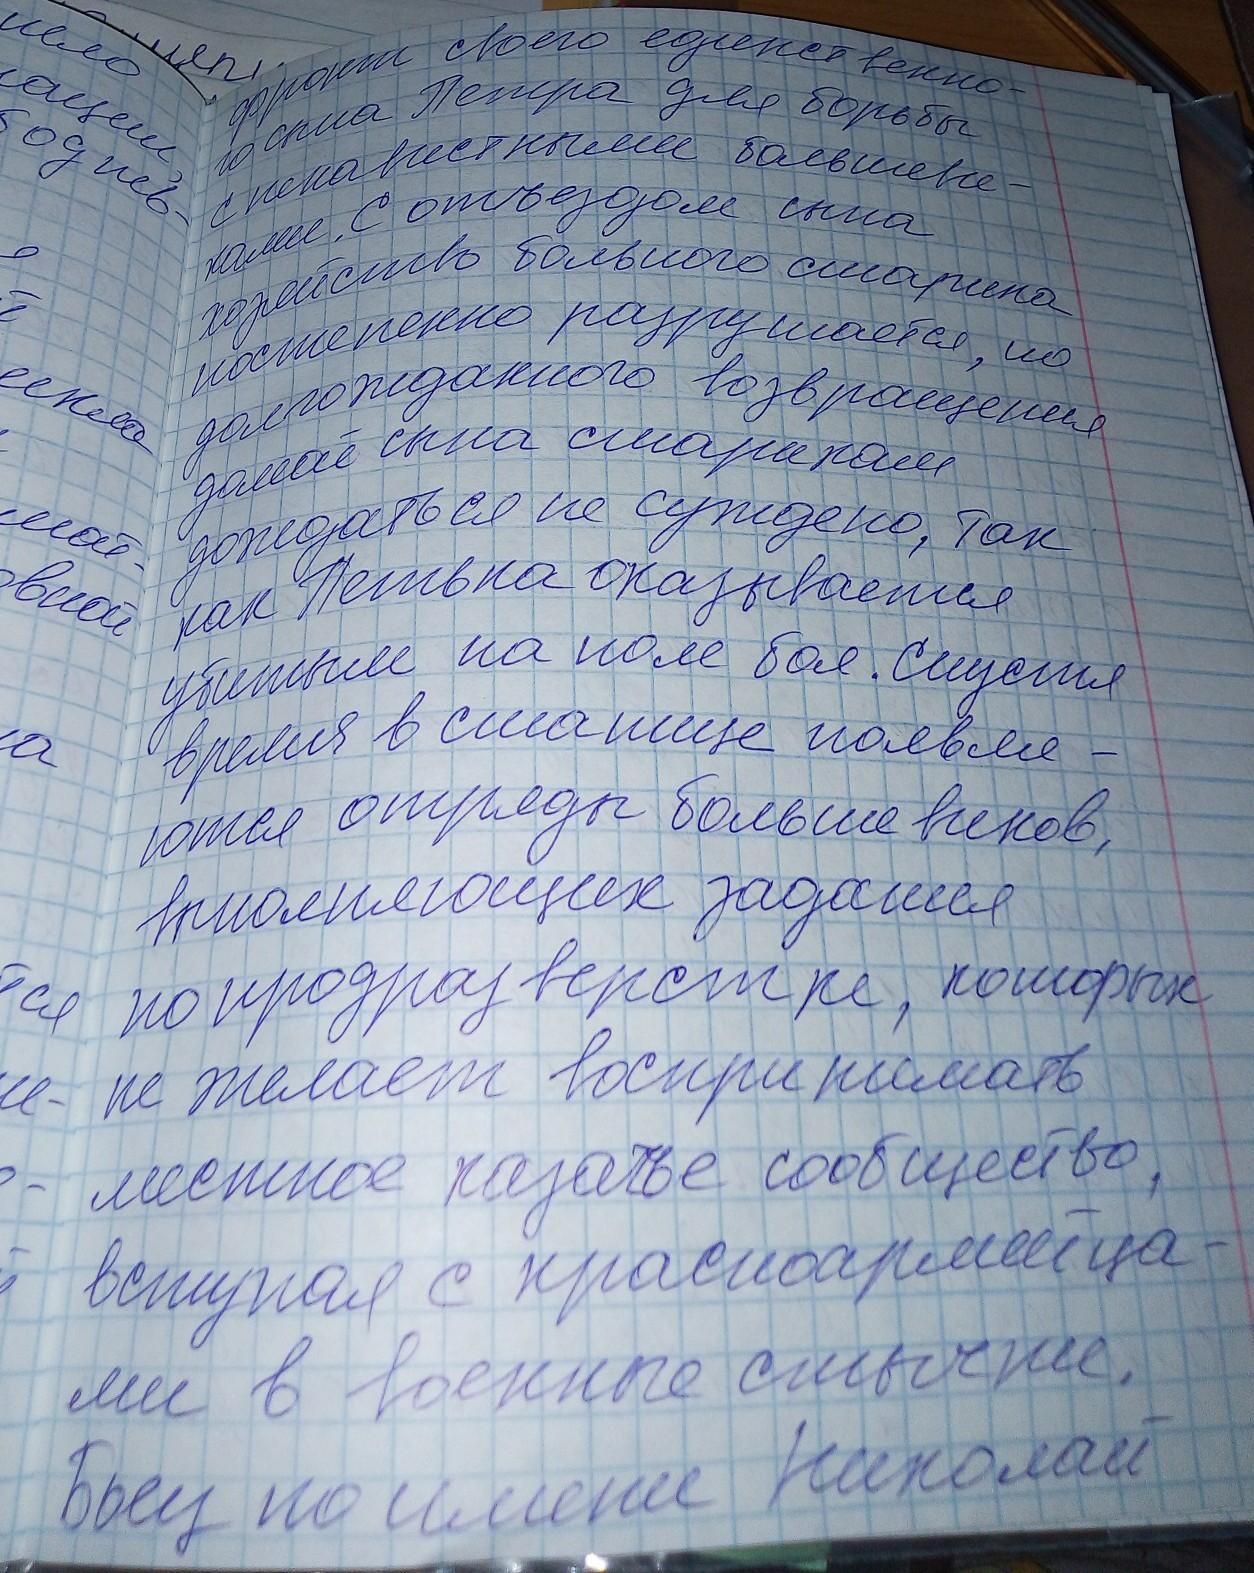 фронт своего единственно-
го сына Петра для борьбы
с ненавистными большеви-
ками. С отъездом сына
хозяйство больного старика
постепенно разрушается, но
долгожданного возвращения
домой сына старикам
дождаться не суждено, так
как Петька оказывается
убитым на поле боя. Спустя
время в станице появля-
ются отряды большевиков,
выполняющих задания
по продразверстке, которых
не желает воспринимать
местное казачье сообщество,
вступая с красноармейца-
ми в военные стычки.
Боец по имени Николай